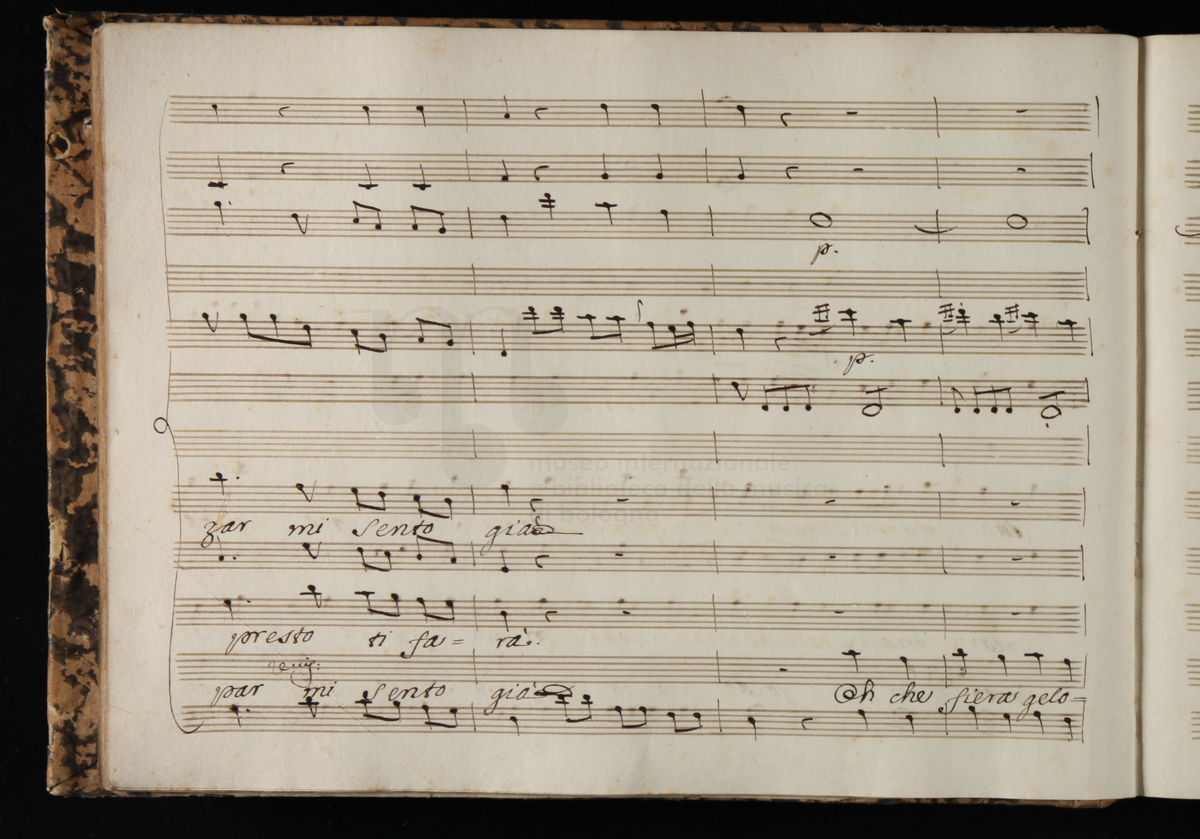 p.
p.
museo internazionale
e biblioteca della musica
di bologna
zar mi sento già
presto ti fa = rà.
par mi sento già Oh che fiera gelo=